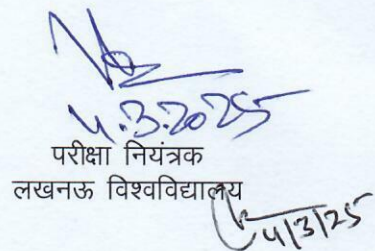 4.3.2025
परीक्षा नियंत्रक
लखनऊ विश्वविद्यालय
4/3/25